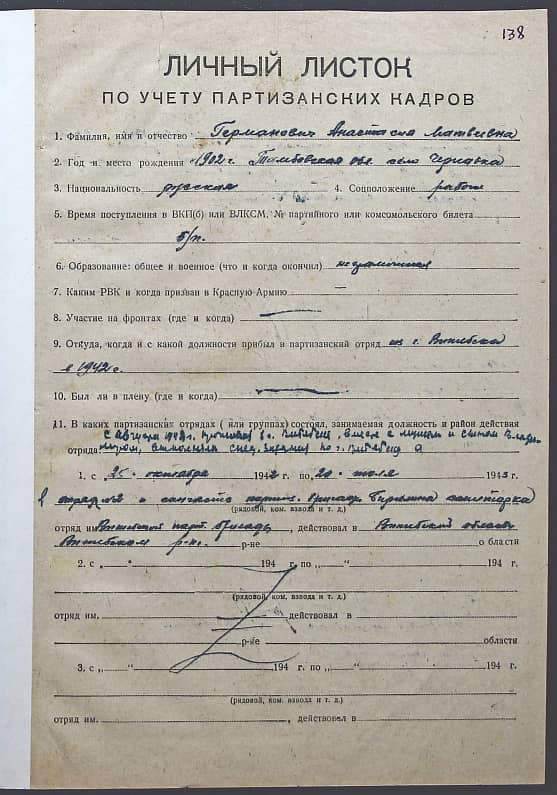 138
ЛИЧНЫЙ ЛИСТОК
ПО УЧЕТУ ПАРТИЗАНСКИХ КАДРОВ
1. Фамилия, имя и отчество Германович Анастасия Матвеевна
2. Год и место рождения 1902 г. Тамбовская обл. село
3. Национальность русская 4. Соцположение рабоч
5. Время поступления в ВКП(б) или ВЛКСМ, № партийного или комсомольского билета
б/п.
6. Образование: общее и военное (что и когда окончил) неграмотная
7. Каким РВК и когда призван в Красную Армию —
8. Участие на фронтах (где и когда) —
9. Откуда, когда и с какой должности прибыл в партизанский отряд из г. Витебска
в 1942 г.
10. Был ли в плену (где и когда) —
11. В каких партизанских отрядах ( или группах) состоял, занимаемая должность и район действия
с августа 1942 г. в г. Витебске, вместе с мужем и сыном Влади-
отряда миром, выполняла спец. задания по г. Витебску а
1. с „25“ октября 1942 г. по „20“ июля 1943 г.
в отряде и санчасть партиз. бригады Бирюлина санитарка
(рядовой, ком. взвода и т. д.)
отряд им. Витебской парт. бригады, действовал в Витебской области
Витебском р-не. р-не о области
2. с „ “ 194 г. по „ “ 194 г.
(рядовой, ком. взвода и т. д.)
отряд им. действовал в
р-не области
3. с „ “ 194 г. по „ “ 194 г.
(рядовой, ком. взвода и т. д.)
отряд им. , действовал в